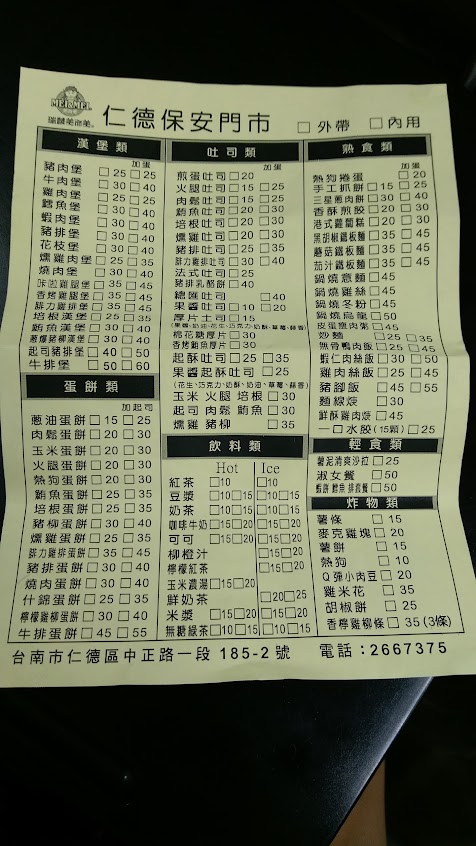 MEI&MEI
仁德保安門市 □外帶 □內用
漢堡類
加蛋
豬肉堡 □25 □25
牛肉堡 □30 □40
雞肉堡 □30 □40
鱈魚堡 □30 □40
蝦肉堡 □30 □40
豬排堡 □30 □40
花枝堡 □30 □40
燻雞肉堡 □25 □35
燒肉堡 □30 □40
咔啦雞腿堡 □35 □45
香烤雞腿堡 □35 □45
培根漢堡 □25 □35
鮪魚漢堡 □30 □40
蔥爆豬柳漢堡 □30 □40
起司豬排堡 □40 □50
牛排堡 □50 □60
蛋餅類
加起司
蔥油蛋餅 □15 □25
肉鬆蛋餅 □20 □30
玉米蛋餅 □20 □30
火腿蛋餅 □20 □30
熱狗蛋餅 □20 □30
鮪魚蛋餅 □25 □35
培根蛋餅 □25 □35
豬柳蛋餅 □20 □30
燻雞蛋餅 □25 □35
腓力雞排蛋餅 □35 □45
豬排蛋餅 □30 □40
燒肉蛋餅 □30 □40
什錦蛋餅 □25 □35
檸檬雞柳蛋餅 □30 □40
牛排蛋餅 □45 □55
吐司類
加蛋
煎蛋吐司 □20
火腿吐司 □15 □25
肉鬆吐司 □15 □25
鮪魚吐司 □20 □30
培根吐司 □20 □30
燻雞吐司 □20 □30
豬排吐司 □25 □35
腓力雞排吐司 □30 □40
法式吐司 □25
豬排乳酪餅 □40
總匯吐司 □40
果醬吐司 □10 □20
厚片土司 □15
(果醬·奶油·花生·巧克力·奶酥·草莓·蒜香)
棉花糖厚片 □30
香烤鮪魚厚片 □30
起酥吐司 □25 □35
果醬起酥吐司 □25
(花生、巧克力、奶酥、奶油、草莓、蒜香)
玉米 火腿 培根 □30
起司 肉鬆 鮪魚 □30
燻雞 豬柳 □35
飲料類
Hot Ice
紅茶 □10 □10
豆漿 □10□15 □10□15
奶茶 □10□15 □10□15
咖啡牛奶 □15□20 □15□20
可可 □15□20 □15□20
柳橙汁 □15□20
檸檬紅茶 □15□20
玉米濃湯 □15□20
鮮奶茶 □20□25
米漿 □15□20 □15□20
無糖綠茶 □10□15 □10□15
熟食類
加蛋
熱狗捲蛋 □20
手工抓餅 □15 □25
三星蔥肉餅 □30 □40
香酥煎餃 □20 □30
港式蘿蔔糕 □20 □30
黑胡椒鐵板麵 □35 □45
蘑菇鐵板麵 □35 □45
茄汁鐵板麵 □35 □45
鍋燒意麵 □45
鍋燒雞絲 □45
鍋燒冬粉 □45
鍋燒烏龍 □50
皮蛋瘦肉粥 □45
炒麵 □25 □35
無骨鴨肉飯 □25 □35
蝦仁肉絲飯 □30 □50
雞肉絲飯 □25 □45
豬腳飯 □45 □55
麵線焿 □30
鮮酥雞肉焿 □45
一口水餃(15顆) □25
輕食類
薯泥清爽沙拉 □25
淑女餐 □50
蝦餅 鱈魚 排套餐 □50
炸物類
薯條 □15
麥克雞塊 □20
薯餅 □15
熱狗 □10
Q彈小肉豆 □20
雞米花 □35
胡椒餅 □25
香檸雞柳條 □35(3條)
台南市仁德區中正路一段 185-2 號 電話:2667375